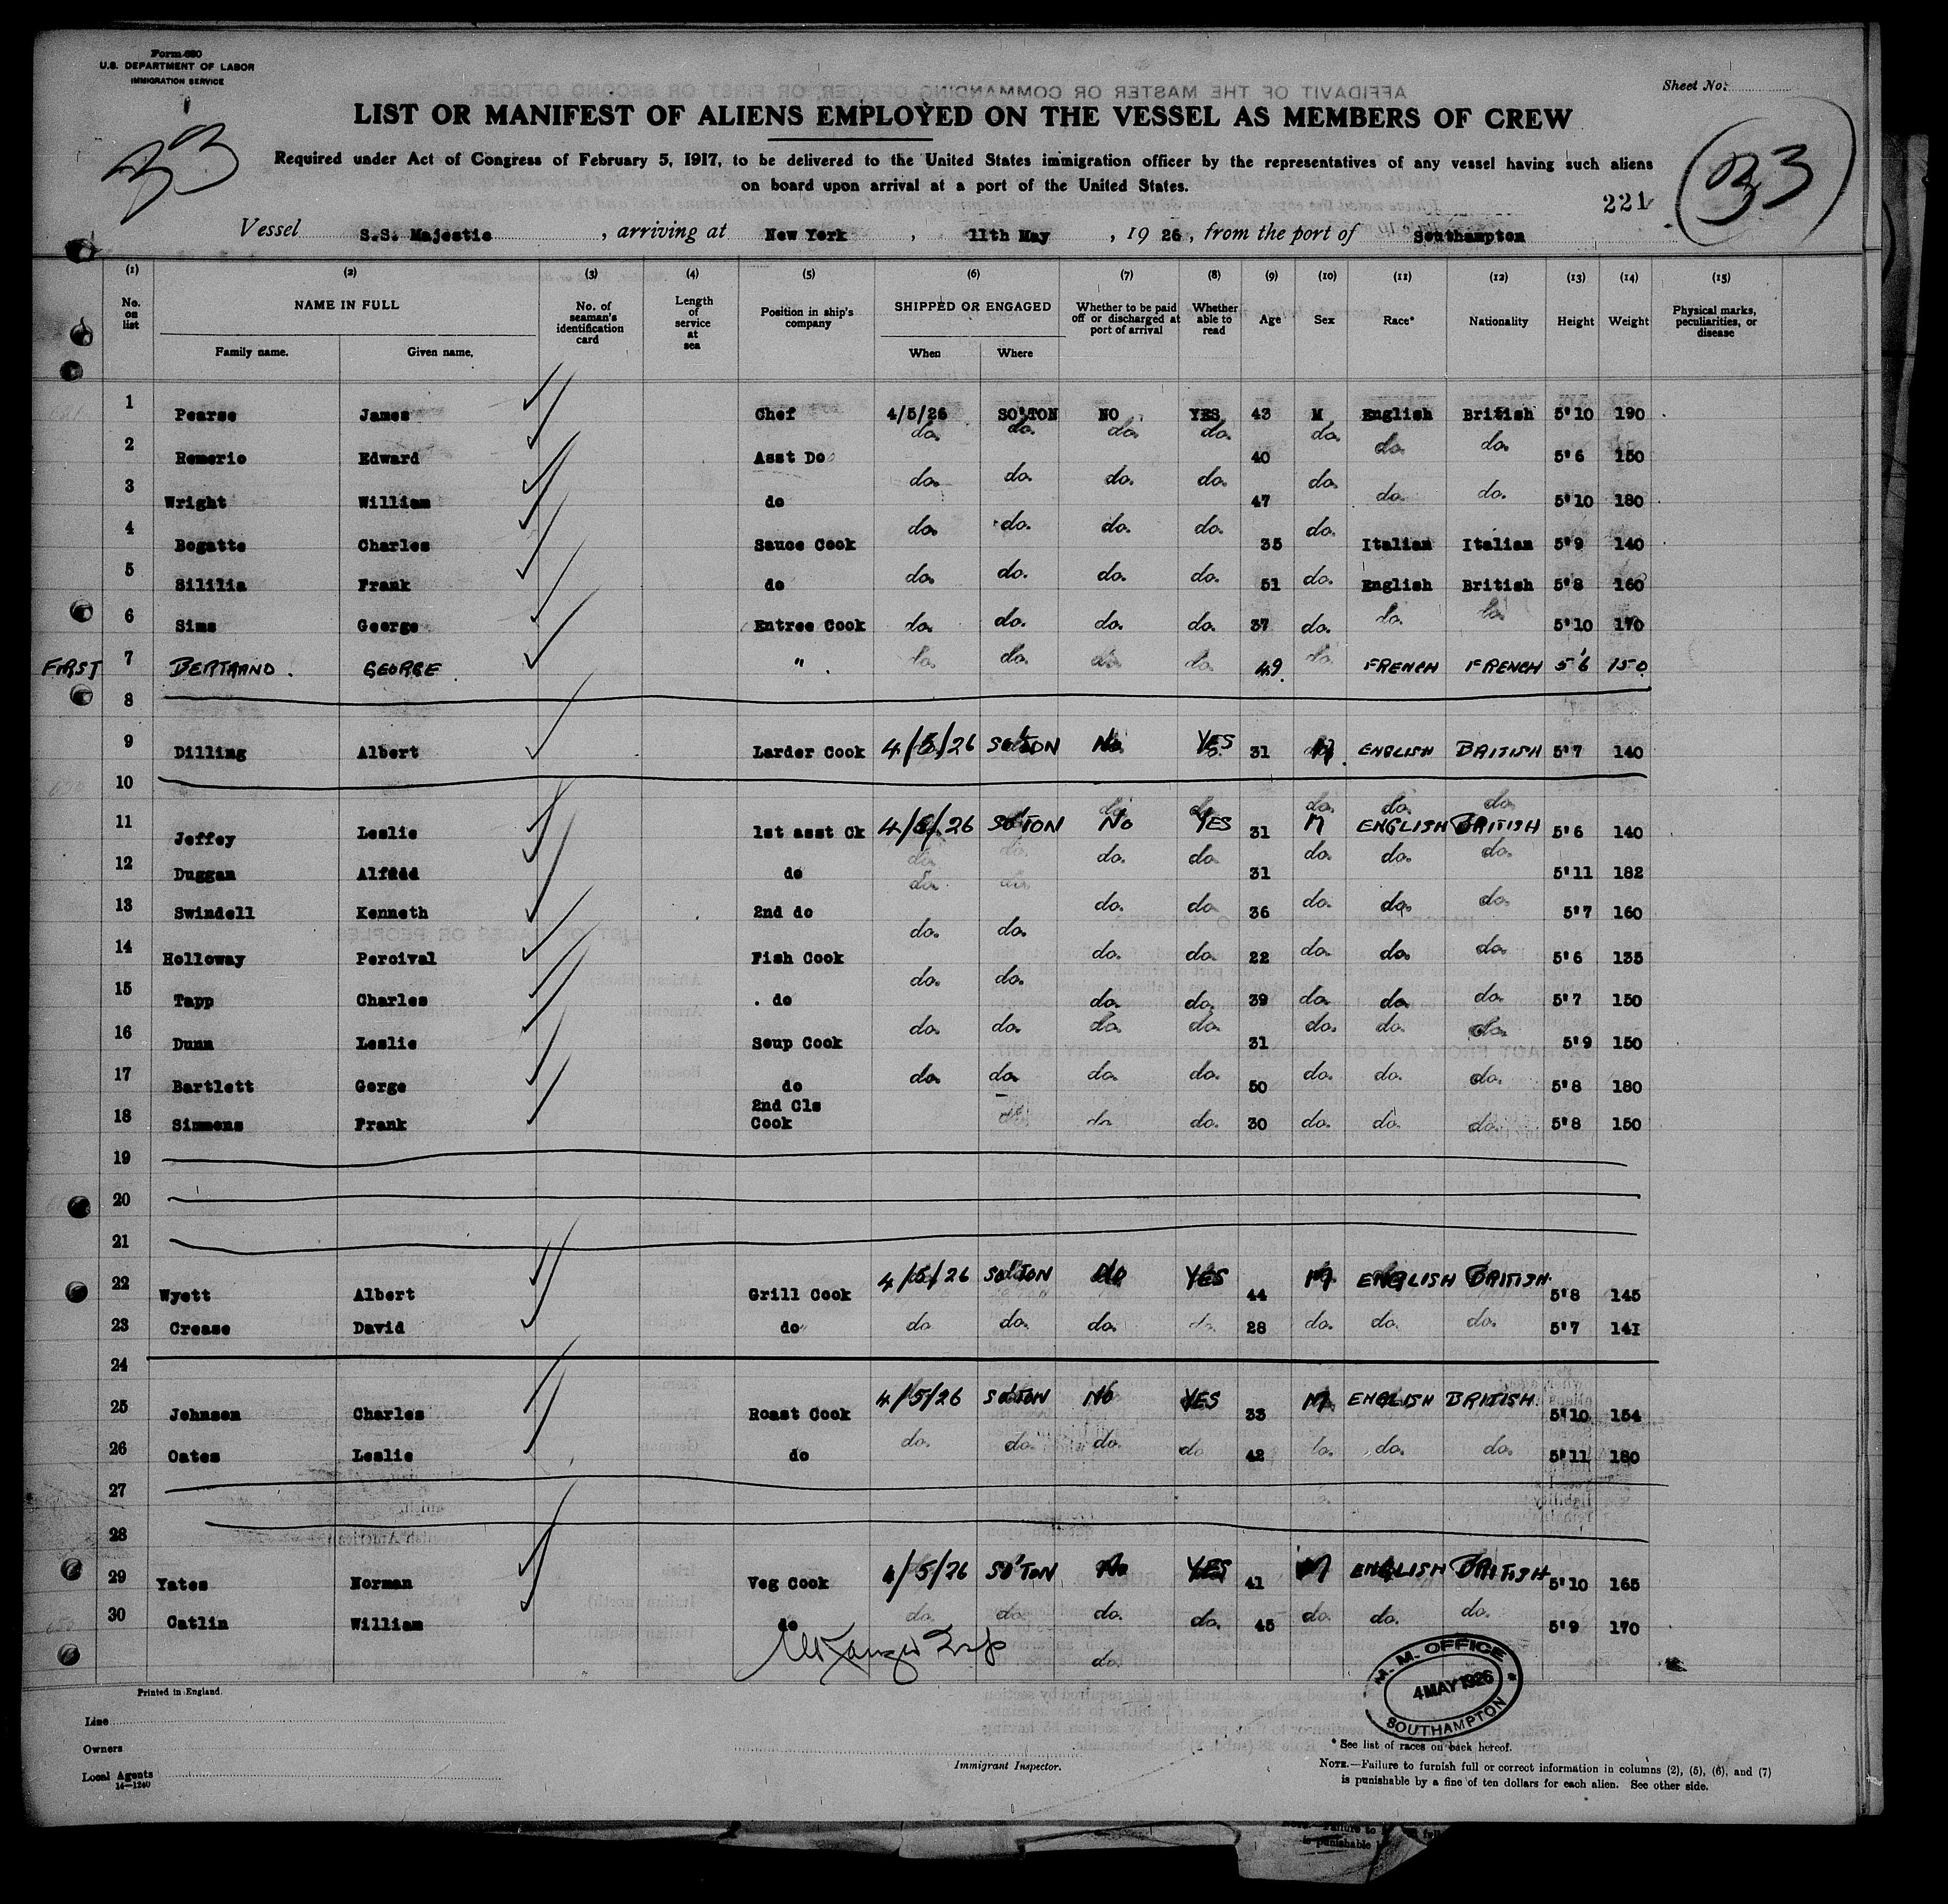 Form 680
U.S. DEPARTMENT OF LABOR
IMMIGRATION SERVICE
Sheet No.
LIST OR MANIFEST OF ALIENS EMPLOYED ON THE VESSEL AS MEMBERS OF CREW
33
Required under Act of Congress of February 5, 1917, to be delivered to the United States immigration officer by the representatives of any vessel having such aliens
on board upon arrival at a port of the United States.
33
221
Vessel S.S. Majestic, arriving at New York, 11th May, 1926, from the port of Southampton
(1) (2) (3) (4) (5) (6) (7) (8) (9) (10) (11) (12) (13) (14) (15)
No. on list NAME IN FULL Family name. Given name. No. of seaman's identification card Length of service at sea Position in ship's company SHIPPED OR ENGAGED When Where Whether to be paid off or discharged at port of arrival Whether able to read Age Sex Race* Nationality Height Weight Physical marks, peculiarities, or disease
1 Pearse James Chef 4/5/26 SO'TON NO YES 43 M English British 5'10 190
2 Remerio Edward Asst Do do. do. do. do. 40 do. do. do. 5'6 150
3 Wright William do do. do. do. do. 47 do. do. do. 5'10 180
4 Bogatte Charles Sauce Cook do. do. do. do. 35 do. Italian Italian 5'9 140
5 Sililia Frank do do. do. do. do. 51 do. English British 5'8 160
6 Sims George Entree Cook do. do. do. do. 37 do. do. do. 5'10 170
FIRST 7 BERTRAND. GEORGE " do. do. do. do. 49 do. FRENCH FRENCH 5'6 150
8
9 Dilling Albert Larder Cook 4/5/26 SO'TON No YES 31 M ENGLISH BRITISH 5'7 140
10
11 Jeffey Leslie 1st asst Ck 4/5/26 SO'TON No YES 31 M ENGLISH BRITISH 5'6 140
12 Duggan Alfddd do do. do. do. do. 31 do. do. do. 5'11 182
13 Swindell Kenneth 2nd do do. do. do. do. 36 do. do. do. 5'7 160
14 Holloway Percival Fish Cook do. do. do. do. 22 do. do. do. 5'6 135
15 Tapp Charles . do do. do. do. do. 39 do. do. do. 5'7 150
16 Dunn Leslie Soup Cook do. do. do. do. 31 do. do. do. 5'9 150
17 Bartlett Gorge do do. do. do. do. 50 do. do. do. 5'8 180
18 Simmons Frank 2nd Cls Cook do. do. do. 30 do. do. do. 5'8 150
19
20
21
22 Wyett Albert Grill Cook 4/5/26 SO'TON No YES 44 M ENGLISH BRITISH 5'8 145
23 Crease David do do. do. do. do. 28 do. do. do. 5'7 141
24
25 Johnson Charles Roast Cook 4/5/26 SO'TON No YES 33 M ENGLISH BRITISH 5'10 154
26 Oates Leslie do do. do. do. do 42 do. do. do. 5'11 180
27
28
29 Yates Norman Veg Cook 4/5/26 SO'TON No YES 41 M ENGLISH BRITISH 5'10 165
30 Catlin William do do. do. do. do. 45 do. do. do. 5'9 170
do.
M. M. OFFICE
4 MAY 1926
SOUTHAMPTON
Printed in England.
Line
Owners
Local Agents
14—1240
Immigrant Inspector.
* See list of races on back hereof.
NOTE.—Failure to furnish full or correct information in columns (2), (5), (6), and (7)
is punishable by a fine of ten dollars for each alien. See other side.